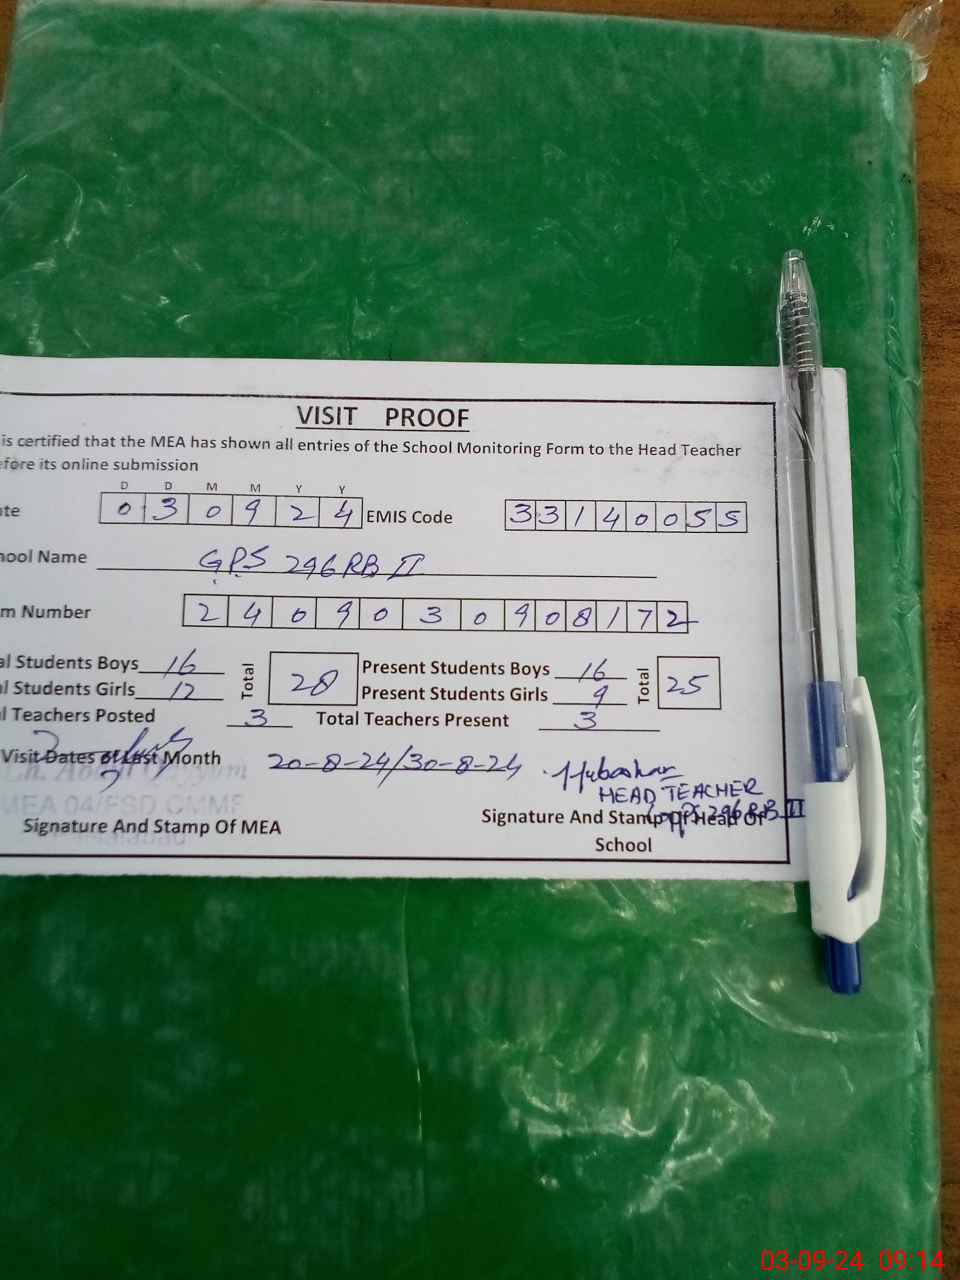 VISIT PROOF
is certified that the MEA has shown all entries of the School Monitoring Form to the Head Teacher
efore its online submission
D D M M Y Y
te 0 3 0 9 2 4 EMIS Code 3 3 1 4 0 0 5 5
hool Name GPS 296 RB II
m Number 2 4 0 9 0 3 0 9 0 8 1 7 2
al Students Boys 16 Total 28 Present Students Boys 16 Total 25
l Students Girls 12 Present Students Girls 9
l Teachers Posted 3 Total Teachers Present 3
Visit Dates of Last Month 20-8-24/30-8-24
HEAD TEACHER
MEA 04/FSD CMMF
296 RB II
Signature And Stamp Of MEA Signature And Stamp Of Head Of
School
03-09-24 09:14